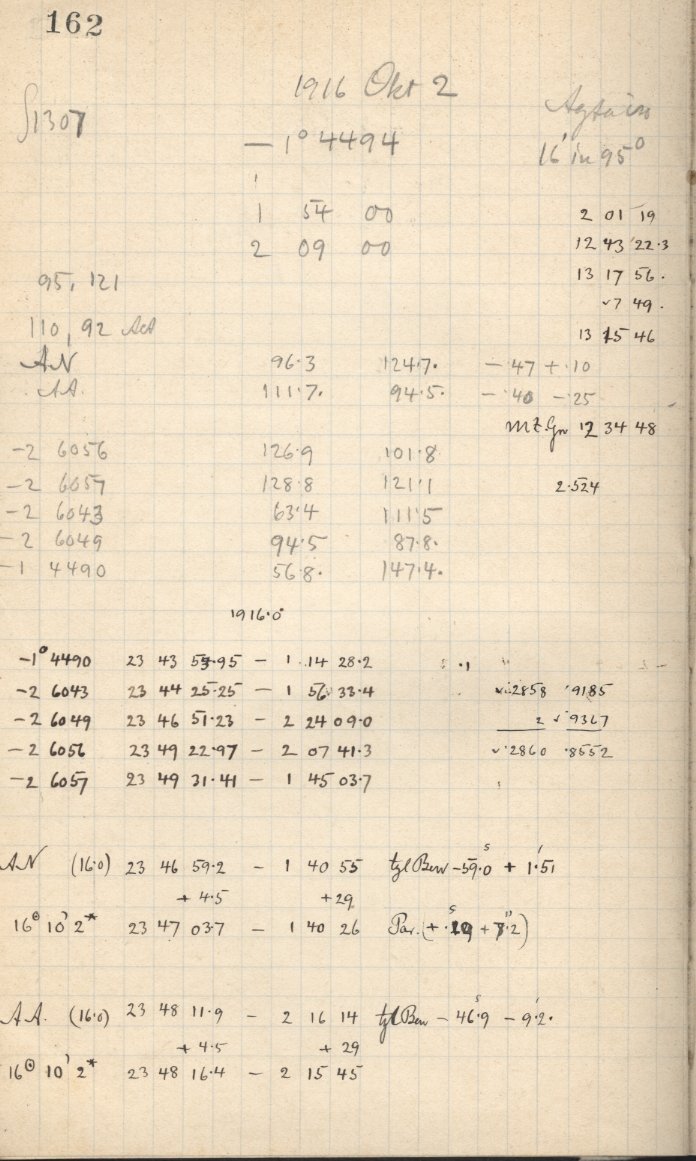 162
1916 Okt 2
1307
— 1° 4494
16' in 95°
1 54 00
2 09 00
2 01 19
12 43 22.3
13 17 56.
7 49.
13 15 46
95, 121
110, 92
AN 96.3 124.7. — 47 + .10
AA. 111.7. 94.5. — .40 — .25
M.Z.Gr 12 34 48
—2 6056 126.9 101.8
—2 6057 128.8 121.1
2.524
—2 6043 63.4 111.5
—2 6049 94.5 87.8.
—1 4490 56.8. 147.4.
1916.0
—1° 4490 23 43 59.95 — 1 14 28.2
—2 6043 23 44 25.25 — 1 56 33.4 .2858 .9185
—2 6049 23 46 51.23 — 2 24 09.0 2 .9367
—2 6056 23 49 22.97 — 2 07 41.3 .2860 .8552
—2 6057 23 49 31.41 — 1 45 03.7
AN (16.0) 23 46 59.2 — 1 40 55 tgl Bew —59.0ˢ + 1'.51
+ 4.5 +29
16° 10' 2* 23 47 03.7 — 1 40 26 Par.
AA. (16.0) 23 48 11.9 — 2 16 14 tgl Bew — 46ˢ.9 — 9'.2.
+ 4.5 + 29
16° 10' 2* 23 48 16.4 — 2 15 45